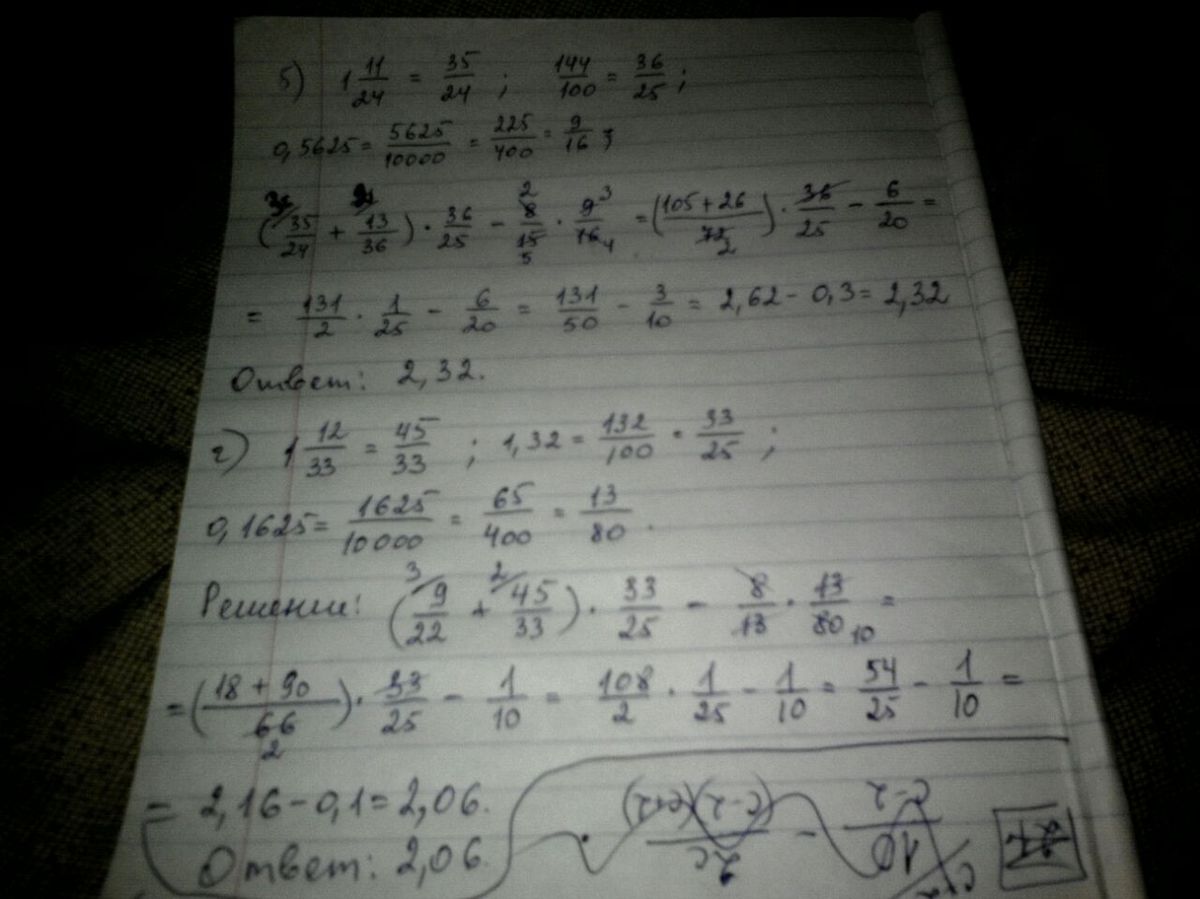 б) 1 11/24 = 35/24 ; 144/100 = 36/25 ;
0,5625 = 5625/10000 = 225/400 = 9/16 ;
(35/24 + 13/36) · 36/25 - 8/15 · 9/16 = (105 + 26 / 72) · 36/25 - 6/20 =
= 131/2 · 1/25 - 6/20 = 131/50 - 3/10 = 2,62 - 0,3 = 2,32
Ответ: 2,32.
г) 1 12/33 = 45/33 ; 1,32 = 132/100 = 33/25 ;
0,1625 = 1625/10000 = 65/400 = 13/80 .
Решение: (9/22 + 45/33) · 33/25 - 8/13 · 13/80 =
= (18 + 90 / 66) · 33/25 - 1/10 = 108/2 · 1/25 - 1/10 = 54/25 - 1/10 =
= 2,16 - 0,1 = 2,06.
Ответ: 2,06.